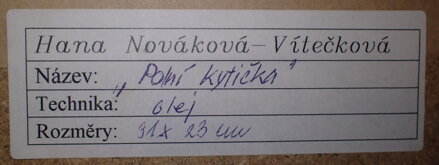 Hana Nováková-Vítečková
Název: „Polní kytička"
Technika: olej
Rozměry: 31x 23 cm